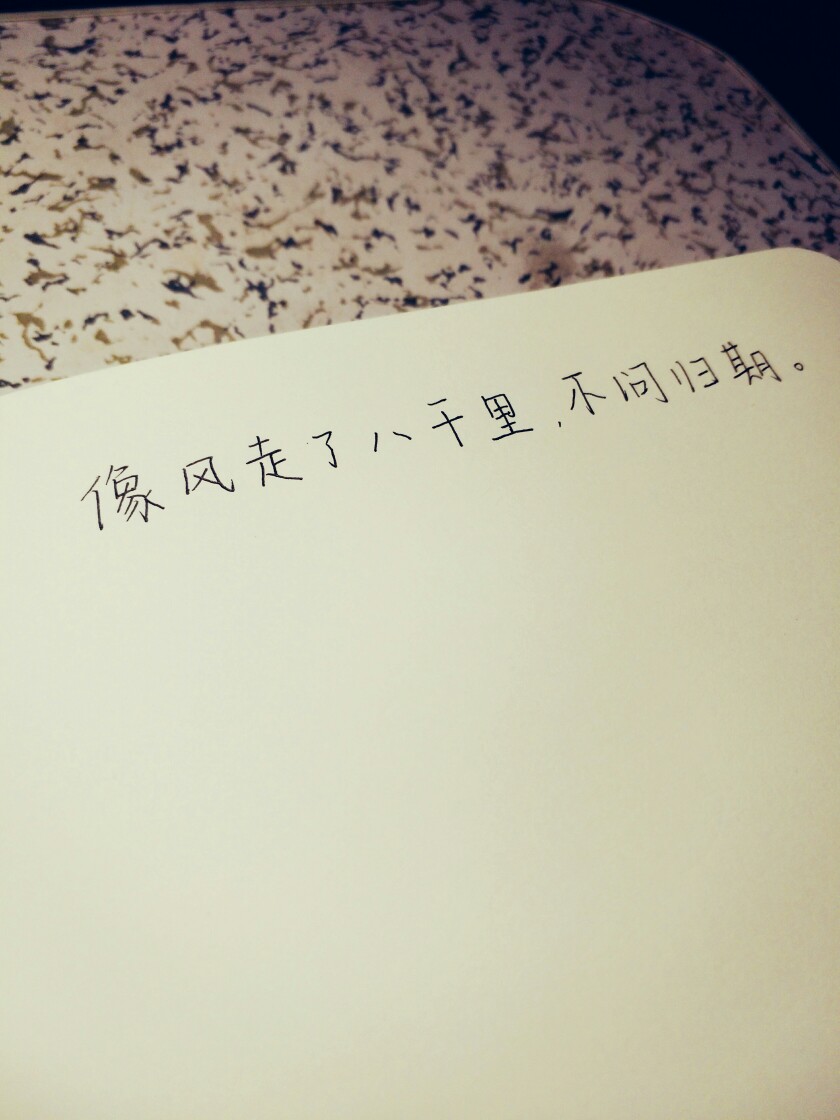 像风走了八千里，不问归期。